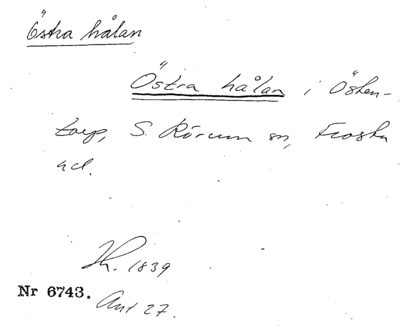 Östra hålan
Östra hålan i Östen-
torp, S. Rörum sn, Frosta
hd.
Lh. 1839
Nr 6743.
Ant 27.